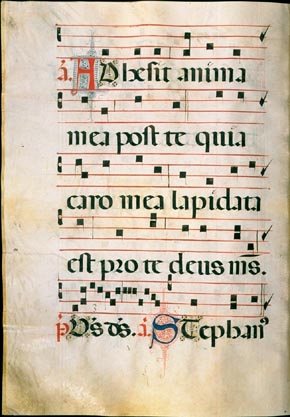 a. Adhesit anima
mea post te quia
caro mea lapidata
est pro te deus m̄s.
p̄s. d̄s. a. Stephanꝰ